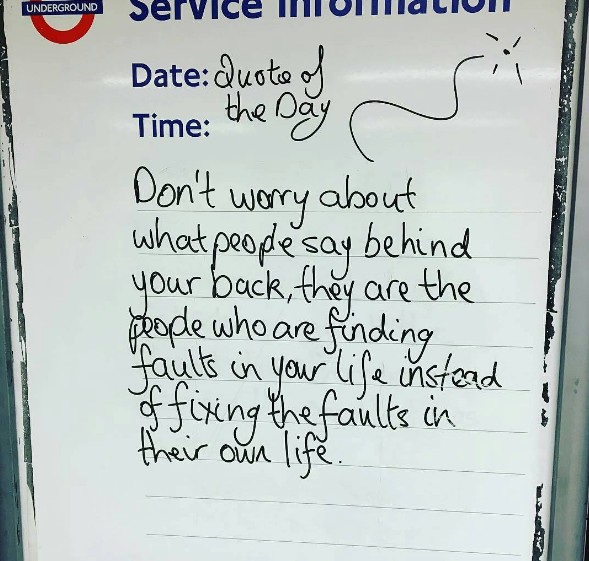 UNDERGROUND
Service Information
Date: Quote of
the Day
Time:
Don't worry about
what people say behind
your back, they are the
people who are finding
faults in your life instead
of fixing the faults in
their own life.